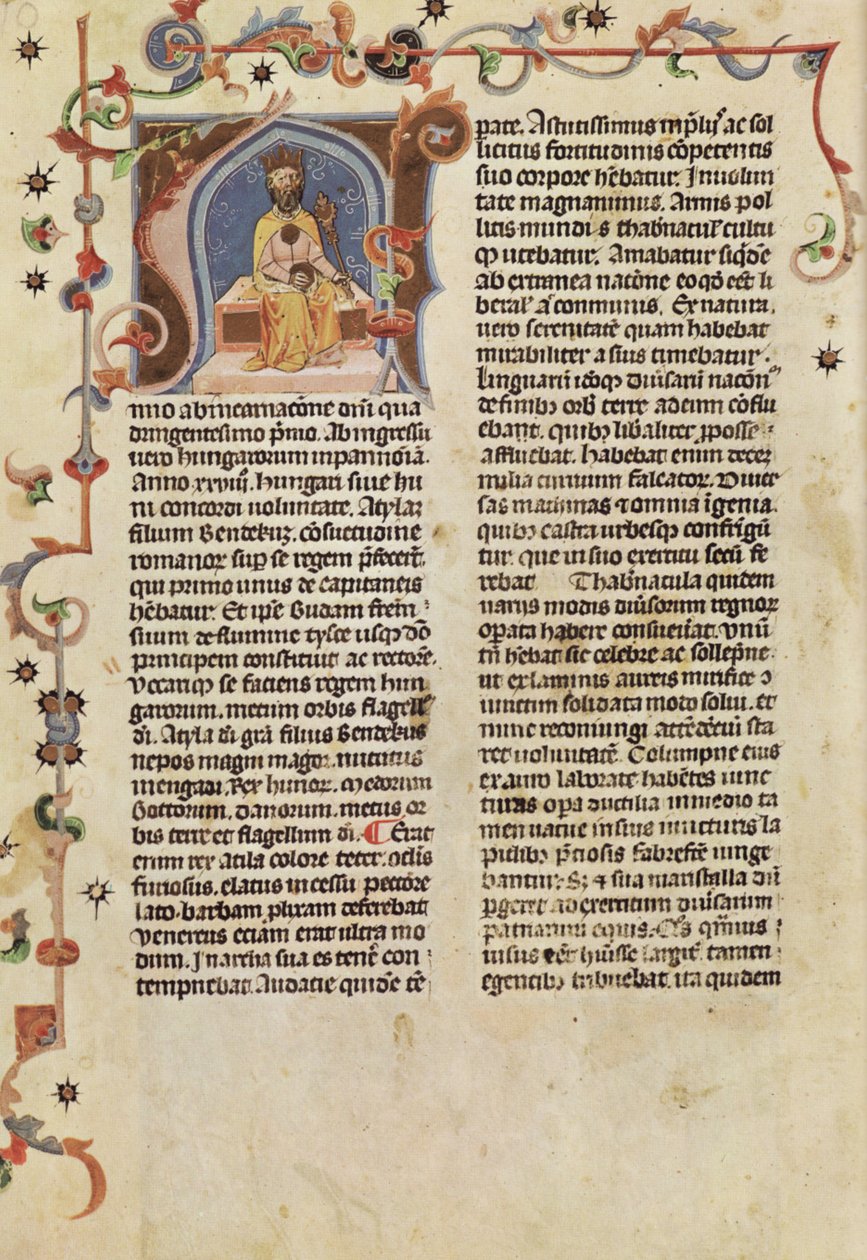 nno ab incarnacōne dni qua
dringentesimo p̄mo. Ab ingressu
uero hungarorum in pannōīa.
Anno xxviii. hungari siue hu
ni concordi uoluntate. Atylaꝫ
filium Bendekuz. cōsuetudine
romanoꝝ sup se regem p̄fecert̄.
qui primo unus de capitaneis
hēbatur. Et ip̄e Budam frēm
suum de flumine tysce usqꝫ dō
principem constituit ac rectorē.
Vocariqꝫ se faciens regem hun
garorum. metum orbis flagell'
di. Atyla di grā filius Bendekus
nepos magni magor. nutritus
in engadi. Rex hunoꝝ. medorum
Gottorum. danorum. metus or
bis terre et flagellum di. ¶ Erat
enim rex atila colore teter. oclīs
furiosus. elatus incessu pectore
lato. barbam plixam deferebat
Venereus eciam erat ultra mo
dum. In archa sua es tenē con
tempnebat. Audacie quidē tē
pate. Astutissimus in p̄liꝫ ac sol
licitus fortitudinis cōpetentis
suo corpore hēbatur. In uolun
tate magnanimus. Armis pol
litis mundis thab'nacul' cultu
qꝫ utebatur. Amabatur siqdē
ab extranea natōne eo qd esset li
beral' ac conmunis. Ex natura
uero seueritatē quam habebat
mirabiliter a suis timebatur.
linguarū idcoqꝫ diuersarū nacōn
de finibꝫ orb' terre ad eum cōflu
ebant. quibꝫ lib'aliter p posse
affluebat. habebat enim decez
milia curruum falcatoꝝ. Diuer
sas machinas ⁊ omnia īgenia.
quibꝫ castra urbesqꝫ confrigū
tur. que in suo exercitu secū fe
rebat Thab'nacula quidem
uarijs modis diuisorum regnoꝝ
opata habere consueuerat. vnū
tn̄ hēbat sic celebre ac sollempne
ut ex laminis aureis mirifice ↄ
iunctim solidata modo solui. et
nunc reconiungi attēdētiū sta
ret uoluntatē. Columpne eius
ex auro laborate habētes iunc
turas opa ductilia in medio ta
men uacue in suis iuncturis la
pidibꝫ p̄ciosis fabrefc̄te iunge
bantur. Sꝫ ⁊ sua maristalla dū
pgeret ad exercitum diuisarum
patriarum equis. Os quāuis
uisus eēt huisse largit' tamen
egentibꝫ tribuebat. ita quidem